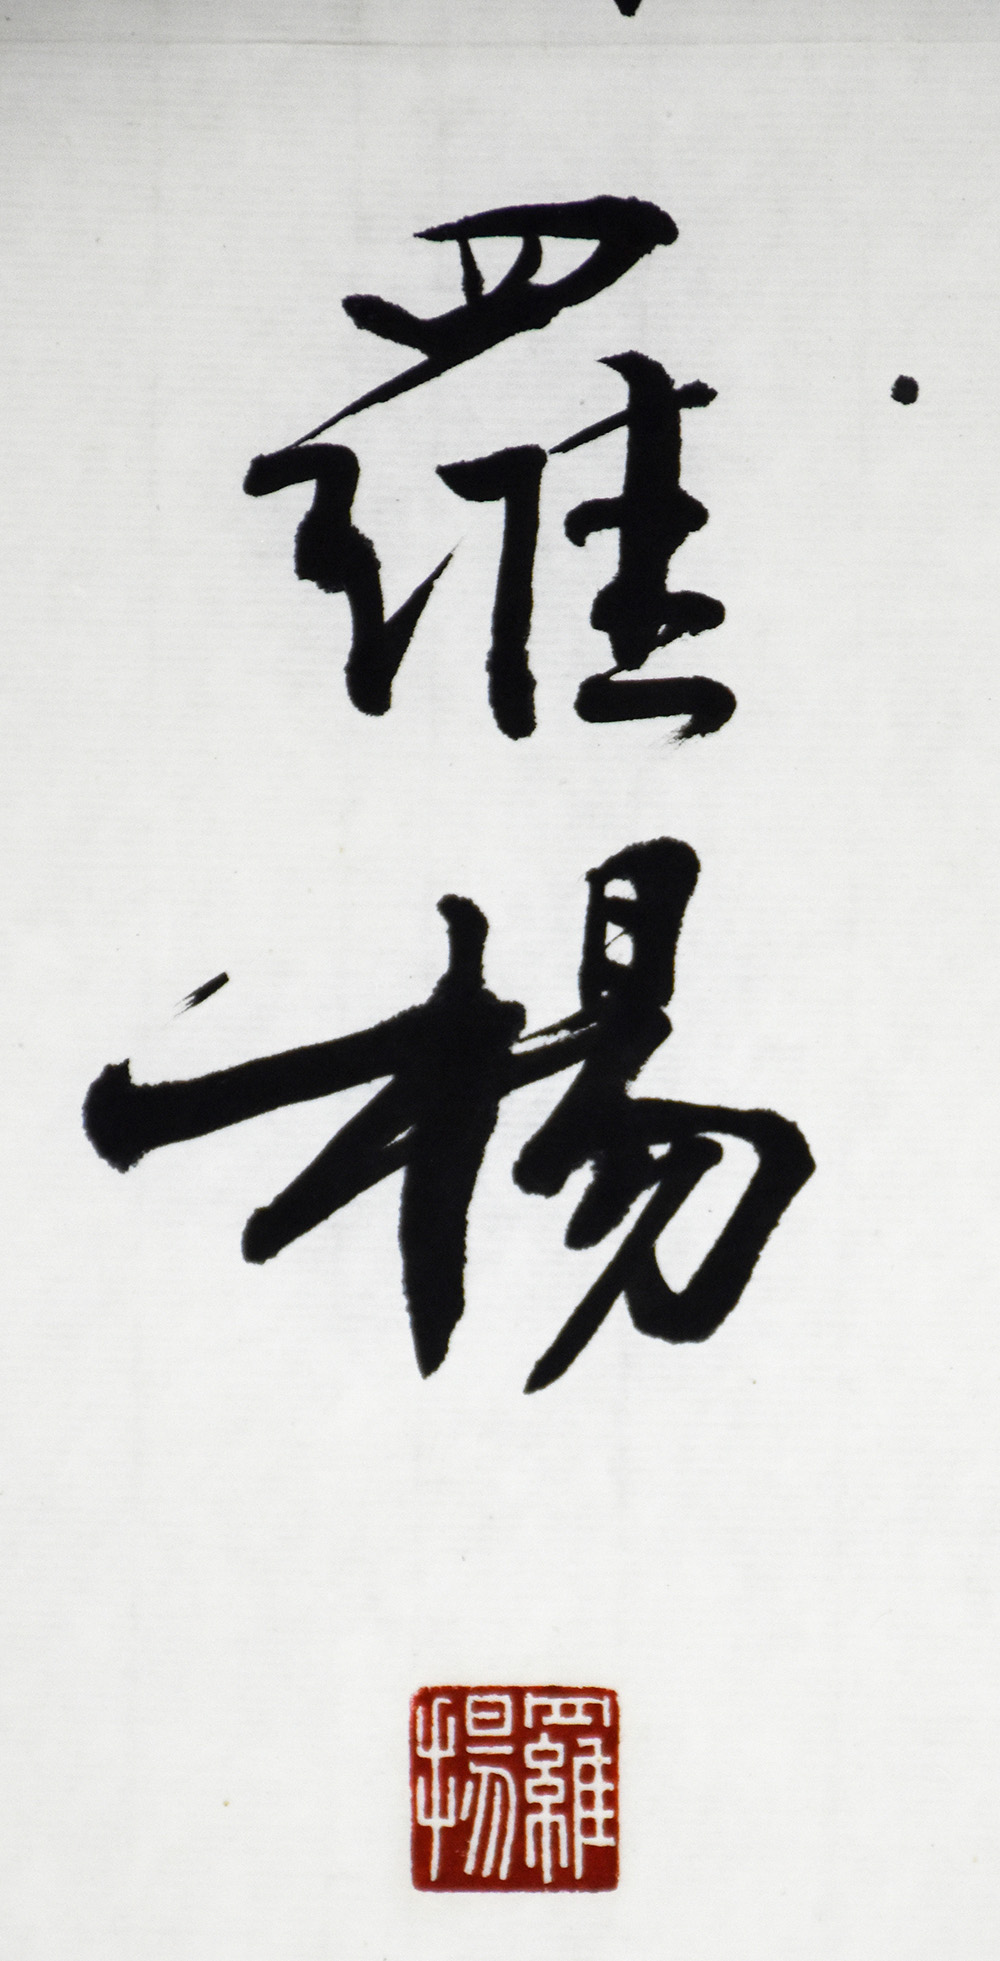 羅
楊
羅楊